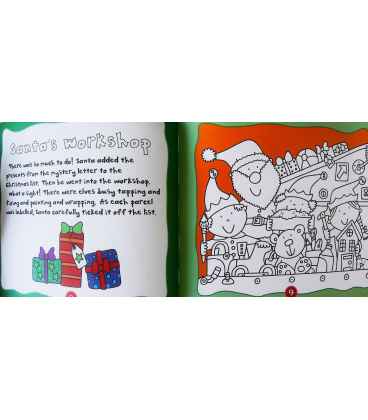 Santa's Workshop
There was so much to do! Santa added the
presents from the mystery letter to the
Christmas list. Then he went into the workshop.
What a sight! There were elves busy tapping and
fixing and painting and wrapping. As each parcel
was labelled, Santa carefully ticked it off the list.
9